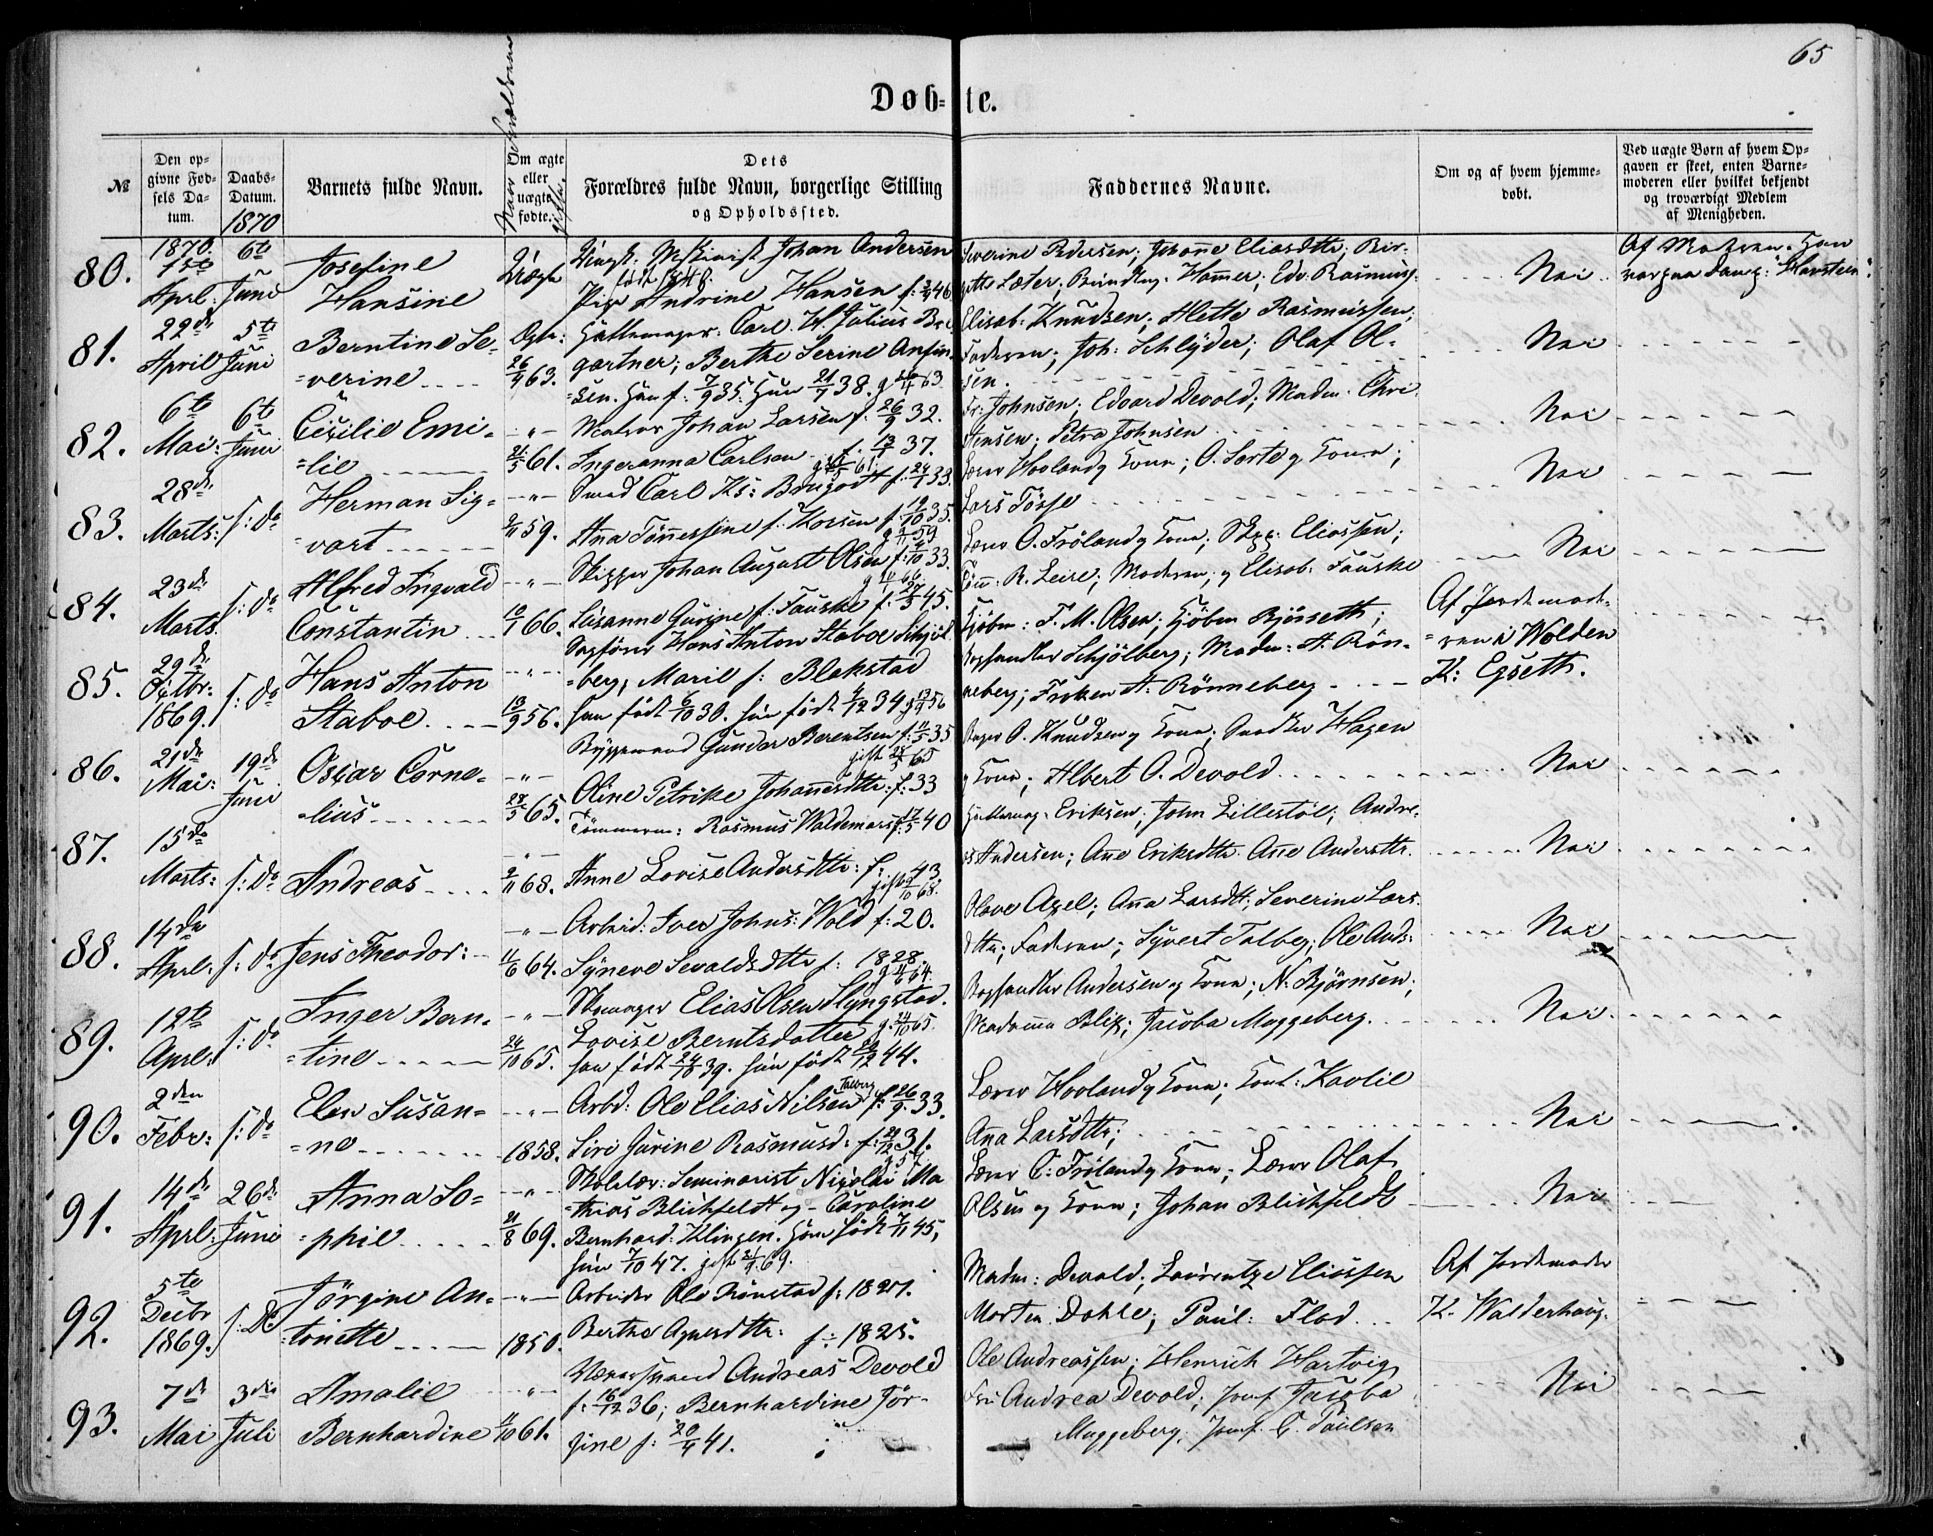 65
Döb-te.
№
Den opgivne Fødsels Datum.
Daabs-Datum.
1870
Barnets fulde Navn.
Om ægte eller uægte fødte.
Naar Forældrene gifte.
Dets Forældres fulde Navn, borgerlige Stilling og Opholdssted.
Faddernes Navne.
Om og af hvem hjemmedøbt.
Ved uægte Børn af hvem Opgaven er skeet, enten Barnemoderen eller hvilket bekjendt og troværdigt Medlem af Menigheden.
80.
1870. 1ste Aprl:
6te Juni
Josefine Hansine
Uægte
Ungk: Johan Andersen
født 1848.
Pige Andrine Hansen
Severine Pedersen; Johanne Eliasdtr; Bir-
gitte Sæter; Hammer; Edv. Rasmus:
Nei
Af Moderen. Han
81.
22de April
5te Juni
Berntine Se-
=verine
Ægte:
26/4 63.
Hattemager: Carl W. Julius Be
gartner; Berthe Serine Anfin-
=sen. Han f. 7/9 35. Hun 21/7 38. g 26/4 63
Elisab: Knudsen; Alette Rasmussen;
Faderen; Joh: Schlyder; Olaf Ol-
sen.
Nei
82.
6te Mai:
6te Juni
Cecilie Emi-
=lie
21/5 61.
Johan Larsen f. 26/9 32.
Ingeranna Carlsen f. 13/7 37.
Fr: Johnsen; Edvard Devold; Madm. Chri-
stensen; Petra Johnsen
Nei
83.
28de Marts:
f: do
Herman Sig-
=vart
2/11 59.
Smed Carl Ks:
Ana Tönnessine f. Korsen f: 19/10 35.
Lærer Hovland og Kone; O. Sorte og Kone;
Lars Tösse
Nei
84.
23de Marts.
f: do
Alfred Ingvald
Constantin
10/1 66.
Skipper Johan August Olsen f: 33.
Susanne Gurine f: Fauske f: 45.
Lærer O. Fröland og Kone; Skpp: Eliassen;
Töm: R. Leire; Moderen; og Elisab: Fauske
Nei
85.
29de Octbr: 1869.
f: do
Hans Anton
Staboe
13/9 56.
Sagförer Hans Anton Staboe Schjöl-
=berg, Maril f: Blakstad
han født 6/10 30. hun født 4/12 34 g 13/9 56
Kjöbm: T. M. Olsen; Kjöbm Bjösseth;
Boghandler Schjölberg; Madm: A. Rön-
neberg; Fröken A: Rönneberg
Af Jordemod-
=ren i Wolden
K: Egseth.
86.
21de Mai:
19de Juni
Oscar Corne-
=lius
28/5 65.
Byggemand Gunder Berentsen f: 11/5 35
gift 28/5 65
Oline Petrike Johannesdtr: f: 33
O. Knudsen og Kone; Snedker Hagen
og Kone; Albert O. Devold
Nei
87.
15de Marts:
f: do
Andreas
2/11 68.
Tömmerm: Rasmus Waldemars f: 17/5 40
Anne Lovise Andersdtr: f: 43
Hattemag. Eriksen; John Lillestöl; Andre-
as Andersen; Ane Eriksdtr. Ane Andersdtr.
Nei
88.
14de Aprl:
f: do
Jens Theodor:
11/6 64.
Arbeid: Iver Johns: Wold f: 20.
Synneve Sevaldsdtr f: 1828.
g 11/6 64.
Olave Axel; Ana Larsdt; Severine Lars-
dttr; Faderen; Syvert Talbeg; Ole Ands:
Nei
89.
12te Aprl:
f: do
Inger Bern-
=tine
24/10 65.
Skomager Elias Olsen Slyngstad.
Lovise Berntsdatter g. 24/10 65.
han født 24/10 39. hun født 44.
Boghandler Andersen og Kone; N. Bjørnsen;
Madamme Blix; Jacoba Muggeberg.
Nei
90.
2den Febr:
f: do
Elen Susan-
=ne
1858.
Arbd: Ole Elias Nilsen Talberg f: 26/9 33.
Siri Jurine Rasmusd: f: 31.
Lærer Hovland og Kone; Kont: Kavlie
Ana Larsdtr;
Nei
91.
14de Aprl:
26de Juni
Anna So-
=phie
21/8 69.
Skolelær: Seminarist Nicolai Ma-
=thias Blichfeldt og Caroline
Bernhard: Klingen. Han født 7/11 45,
hun 7/10 47. gift 69.
Lærer O: Fröland og Kone; Lærer Olaf
Olsen og Kone; Johan Blichfeldt
Nei
92.
5te Decbr 1869.
f: Do
Jörgine An-
=tonette
1850.
Arbeider Ole Rönstad f. 1821.
Berthe Agnesdtr: f: 1825.
Madm: Devold; Laurentze Eliassen
Morten Dahle; Paul: Flod
Af Jordemoder
K. Walderhaug.
93.
7de Mai
3die Juli
Amalie
Bernhardine
11/10 61.
Andreas Devold
f: 16/12 36; Bernhardine Jör-
gine f: 20/4 41.
Ole Andreassen; Henrich Hartvig
Fru Andrea Devold; Jomf Jacoba
Muggeberg; Jomf. C. Paulsen
Nei